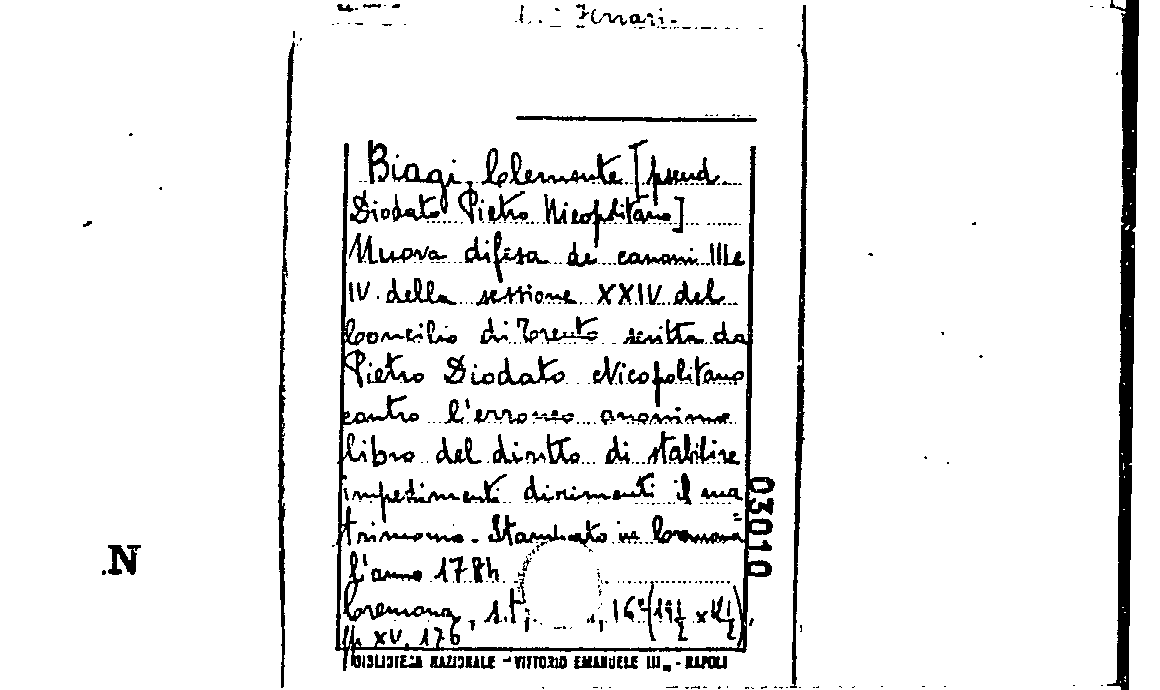 Ferrari.
Biagi, Clemente [pseud.
Diodato Pietro Nicopolitano]
Nuova difesa de canoni III e
IV della sessione XXIV del
Concilio di Trento scritta da
Pietro Diodato Nicopolitano
contro l'erroneo anonimo
libro del diritto di stabilire
impedimenti dirimenti il ma
trimonio. Stampato in Cremona
l'anno 1784
Cremona, s.t., 16°
pp XV, 176
BIBLIOTECA NAZIONALE - VITTORIO EMANUELE III„ - NAPOLI
03010
N